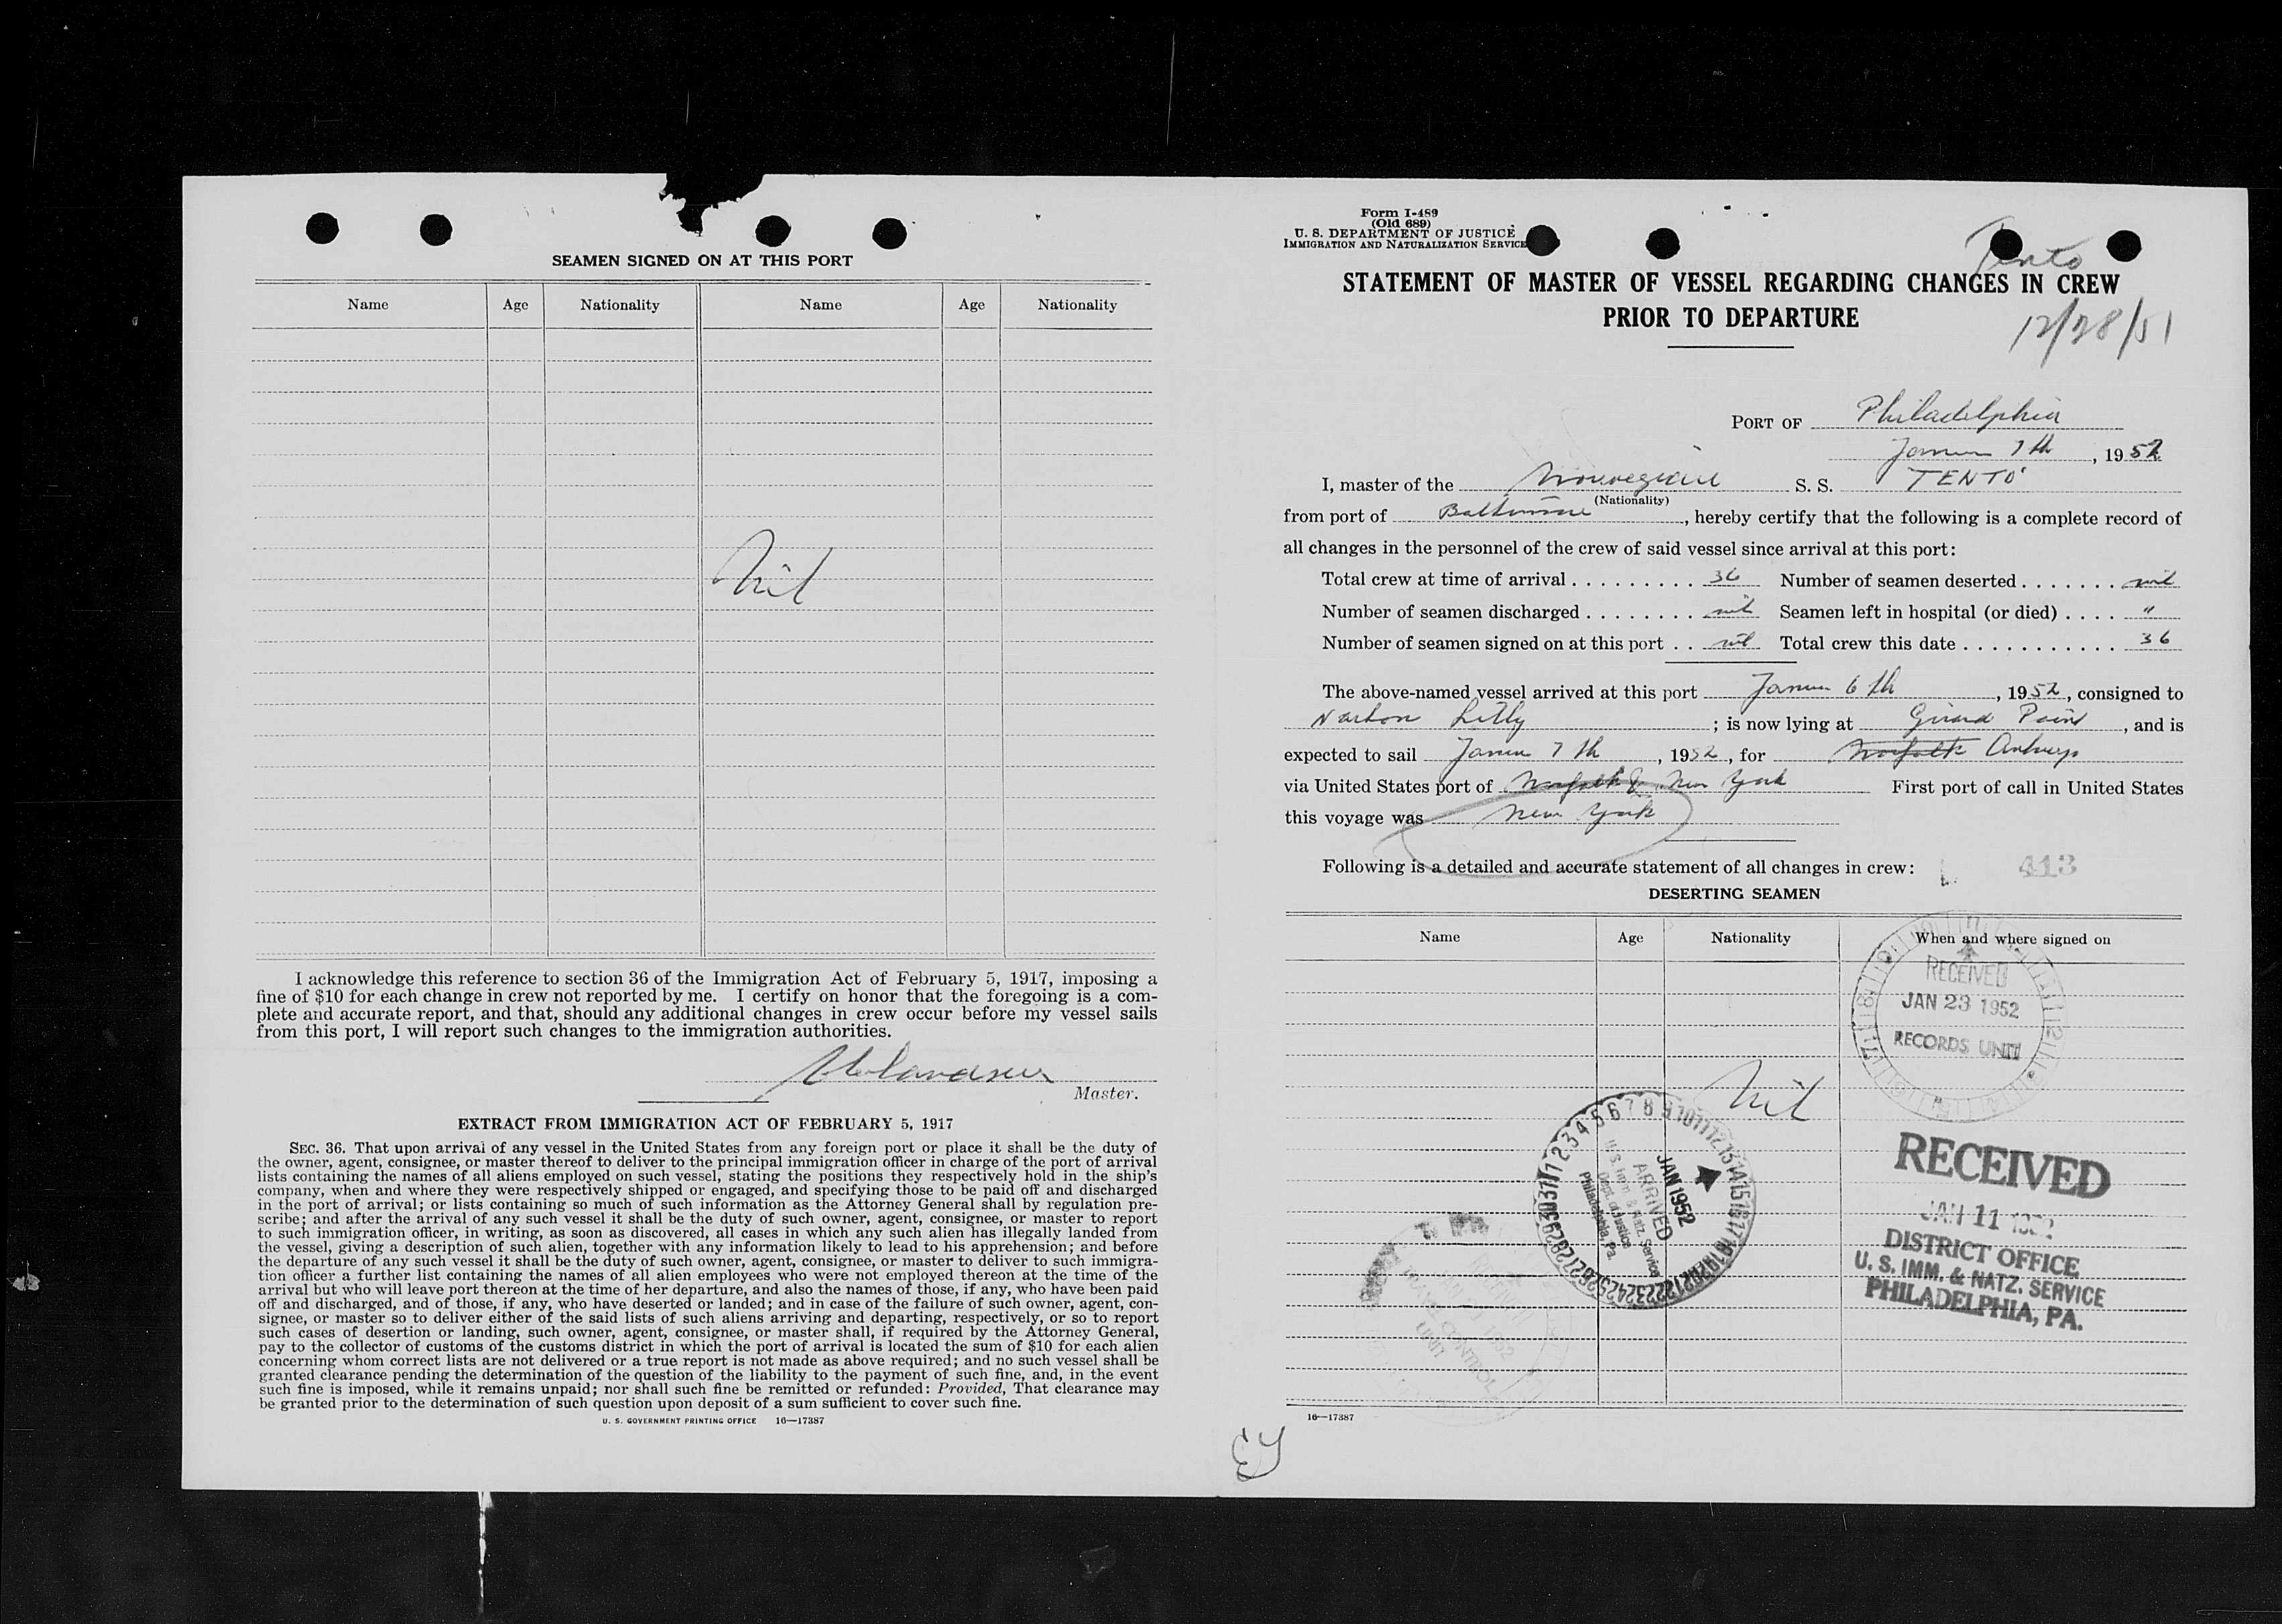 SEAMEN SIGNED ON AT THIS PORT
Name Age Nationality Name Age Nationality
Nil
I acknowledge this reference to section 36 of the Immigration Act of February 5, 1917, imposing a
fine of $10 for each change in crew not reported by me. I certify on honor that the foregoing is a com-
plete and accurate report, and that, should any additional changes in crew occur before my vessel sails
from this port, I will report such changes to the immigration authorities.
Master.
EXTRACT FROM IMMIGRATION ACT OF FEBRUARY 5, 1917
SEC. 36. That upon arrival of any vessel in the United States from any foreign port or place it shall be the duty of
the owner, agent, consignee, or master thereof to deliver to the principal immigration officer in charge of the port of arrival
lists containing the names of all aliens employed on such vessel, stating the positions they respectively hold in the ship's
company, when and where they were respectively shipped or engaged, and specifying those to be paid off and discharged
in the port of arrival; or lists containing so much of such information as the Attorney General shall by regulation pre-
scribe; and after the arrival of any such vessel it shall be the duty of such owner, agent, consignee, or master to report
to such immigration officer, in writing, as soon as discovered, all cases in which any such alien has illegally landed from
the vessel, giving a description of such alien, together with any information likely to lead to his apprehension; and before
the departure of any such vessel it shall be the duty of such owner, agent, consignee, or master to deliver to such immigra-
tion officer a further list containing the names of all alien employees who were not employed thereon at the time of the
arrival but who will leave port thereon at the time of her departure, and also the names of those, if any, who have been paid
off and discharged, and of those, if any, who have deserted or landed; and in case of the failure of such owner, agent, con-
signee, or master so to deliver either of the said lists of such aliens arriving and departing, respectively, or so to report
such cases of desertion or landing, such owner, agent, consignee, or master shall, if required by the Attorney General,
pay to the collector of customs of the customs district in which the port of arrival is located the sum of $10 for each alien
concerning whom correct lists are not delivered or a true report is not made as above required; and no such vessel shall be
granted clearance pending the determination of the question of the liability to the payment of such fine, and, in the event
such fine is imposed, while it remains unpaid; nor shall such fine be remitted or refunded: Provided, That clearance may
be granted prior to the determination of such question upon deposit of a sum sufficient to cover such fine.
U. S. GOVERNMENT PRINTING OFFICE 16—17387
Form I-489
(Old 689)
U. S. DEPARTMENT OF JUSTICE
IMMIGRATION AND NATURALIZATION SERVICE
Tento
STATEMENT OF MASTER OF VESSEL REGARDING CHANGES IN CREW
PRIOR TO DEPARTURE
12/28/51
PORT OF Philadelphia
7th, 1952
I, master of the Norwegian S. S. "TENTO"
(Nationality)
from port of Baltimore, hereby certify that the following is a complete record of
all changes in the personnel of the crew of said vessel since arrival at this port:
Total crew at time of arrival . . . . . . . . . 36 Number of seamen deserted . . . . . . . nil
Number of seamen discharged . . . . . . . . nil Seamen left in hospital (or died) . . . . "
Number of seamen signed on at this port . . nil Total crew this date . . . . . . . . . . . 36
The above-named vessel arrived at this port 6th, 1952, consigned to
Lilly ; is now lying at Girard Point, and is
expected to sail 7th, 1952, for Norfolk Antwerp
via United States port of Norfolk & New York First port of call in United States
this voyage was New York
Following is a detailed and accurate statement of all changes in crew:
413
DESERTING SEAMEN
Name Age Nationality When and where signed on
RECEIVED
JAN 23 1952
RECORDS UNIT
Nil
JAN 1952
ARRIVED
U. S. Imm. & Natz. Service
Dept. of Justice
Philadelphia, Pa.
RECEIVED
JAN 11 1952
DISTRICT OFFICE
U. S. IMM. & NATZ. SERVICE
PHILADELPHIA, PA.
16—17387